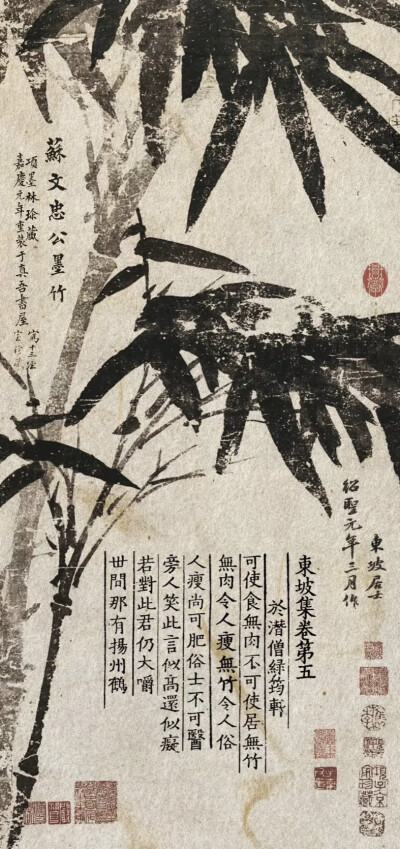 蘇文忠公墨竹
項墨林珍藏
嘉慶元年重裝于真吾書屋
紹聖元年三月作
東坡居士
東坡集卷第五
於潛僧綠筠軒
可使食無肉不可使居無竹
無肉令人瘦無竹令人俗
人瘦尚可肥俗士不可醫
旁人笑此言似髙還似癡
若對此君仍大嚼
世間那有揚州鶴